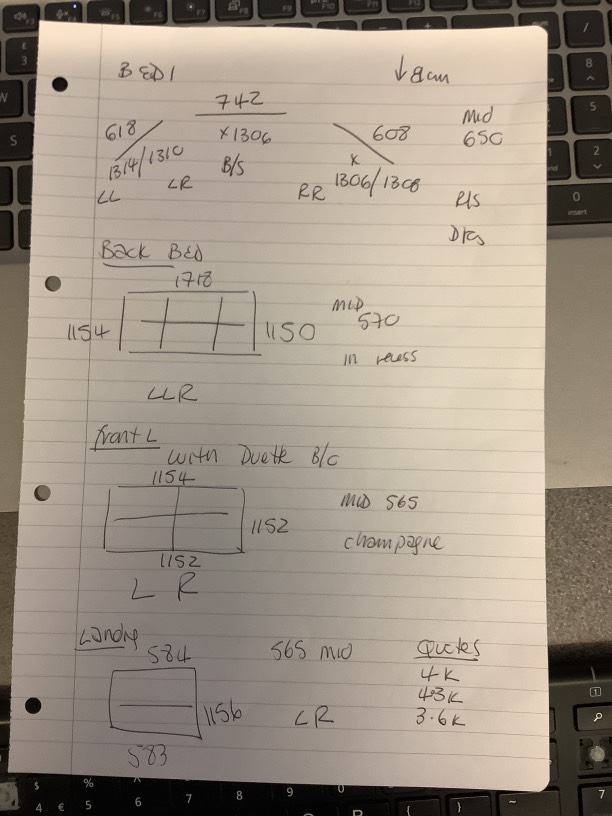 BED1
↓8cm
742
618
x1306
608
Mid
650
1314/1310
B/s
x
1306/1308
LL
LR
RR
R/s
Back BED
1718
1154
1150
MID
570
in recess
LLR
front L
with Duette B/C
1154
1152
MID 565
champagne
1152
L R
Landing
584
565 mid
Quotes
4K
4.3K
1156
LR
3.6K
583